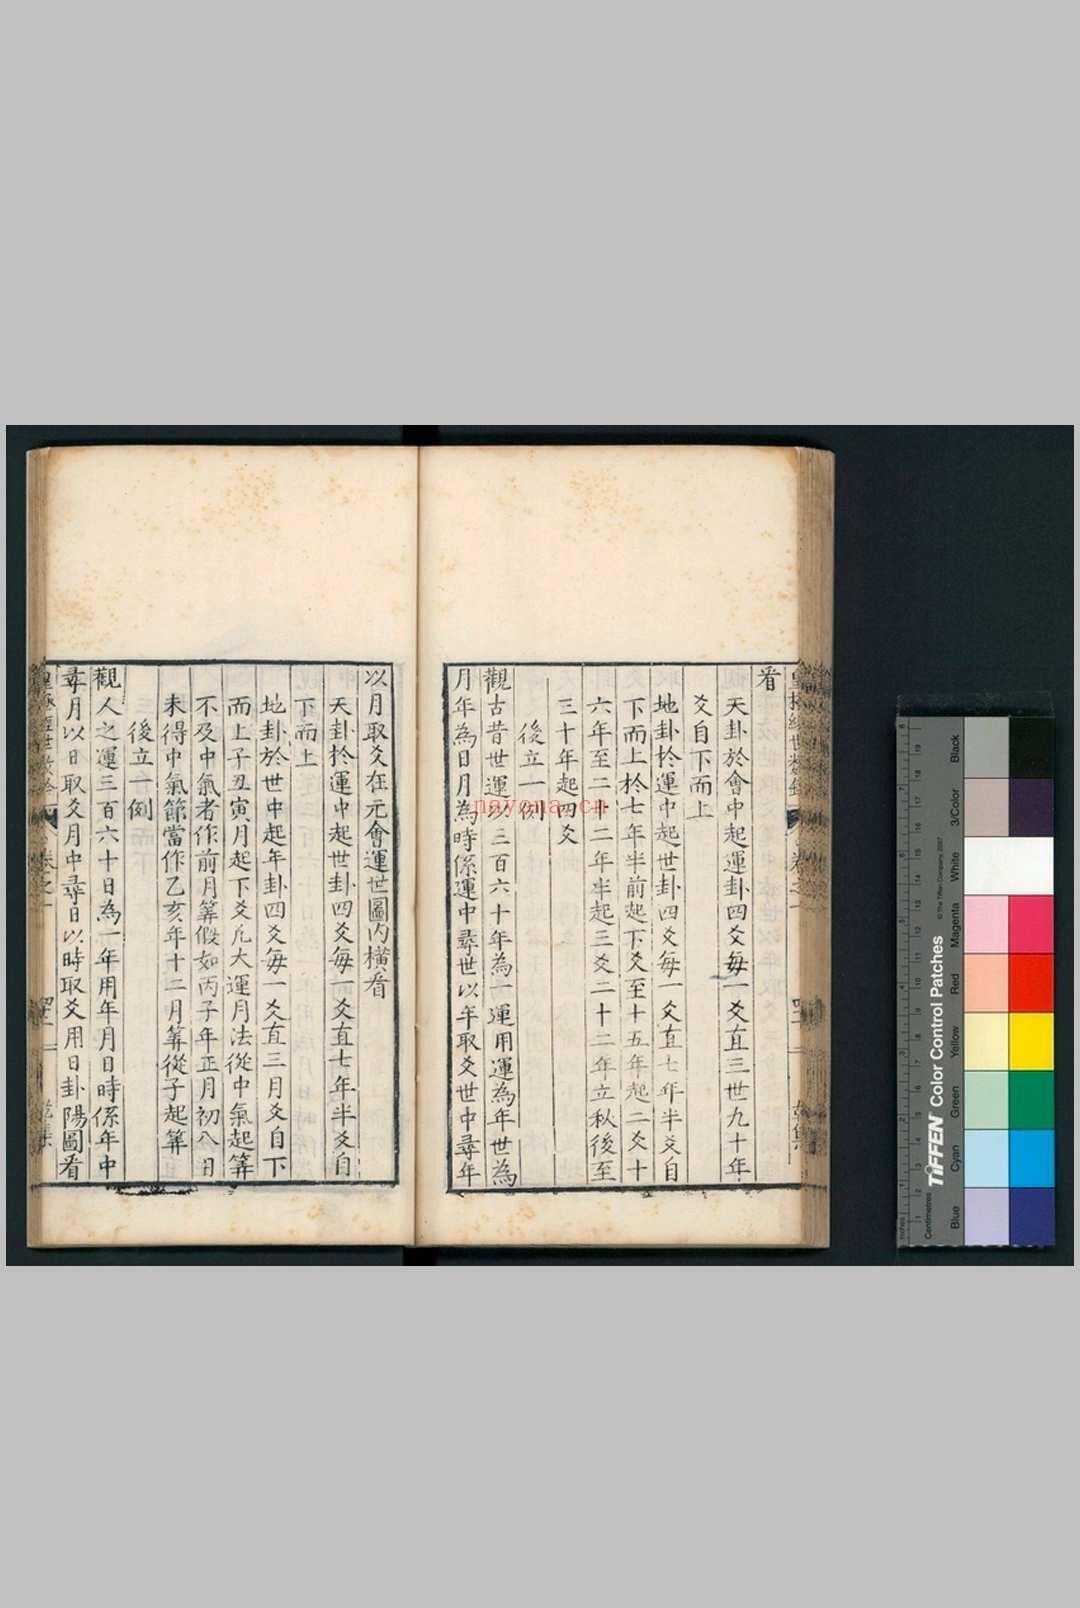 看
天卦於會中起運卦四爻每一爻直三世九十年
爻自下而上
地卦於運中起世卦四爻每一爻直七年半爻自
下而上於七年半前起下爻至十五年起二爻十
六年至二十二年半起三爻二十二年立秋後至
三十年起四爻
後立一例
觀古昔世運以三百六十年為一運用運為年世為
月年為日月為時係運中尋世以年取爻世中尋年
以月取爻在元會運世圖內橫看
天卦於運中起世卦四爻每一爻直七年半爻自
下而上
地卦於世中起年卦四爻每一爻直三月爻自下
而上子丑寅月起下爻凡大運月法從中氣起筭
不及中氣者作前月筭假如丙子年正月初八日
未得中氣節當作乙亥年十二月筭從子起筭
後立一例
觀人之運三百六十日為一年用年月日時係年中
尋月以日取爻月中尋日以時取爻用日卦陽圖看
nayona.cn
Black
3/Color
White
Magenta
Red
Yellow
Green
Cyan
Blue
TIFFEN Color Control Patches
© The Tiffen Company, 2007
Centimetres
Inches